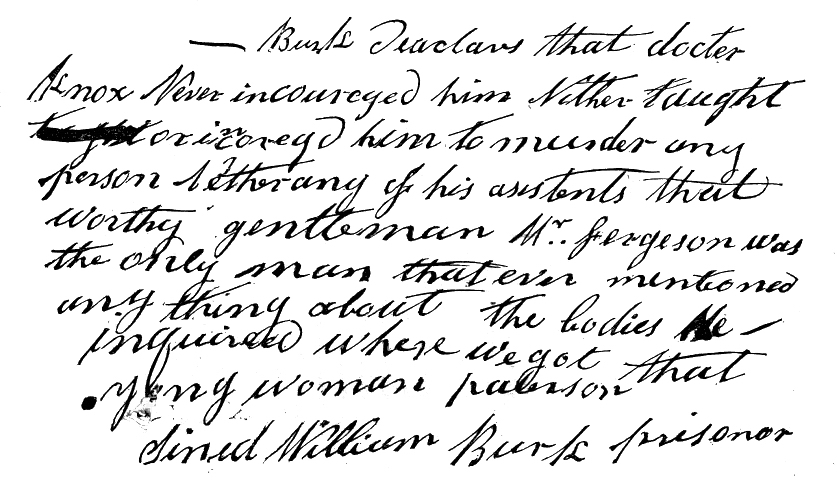 — Burk deaclars that docter
Knox Never incoureged him Nither taught
or incoregd him to murder any
person Nether any of his asistents that
worthy gentleman Mr. Fergeson was
the only man that ever mentioned
any thing about the bodies He —
inquired where we got
yong woman paterson that
Sined William Burk prisonor